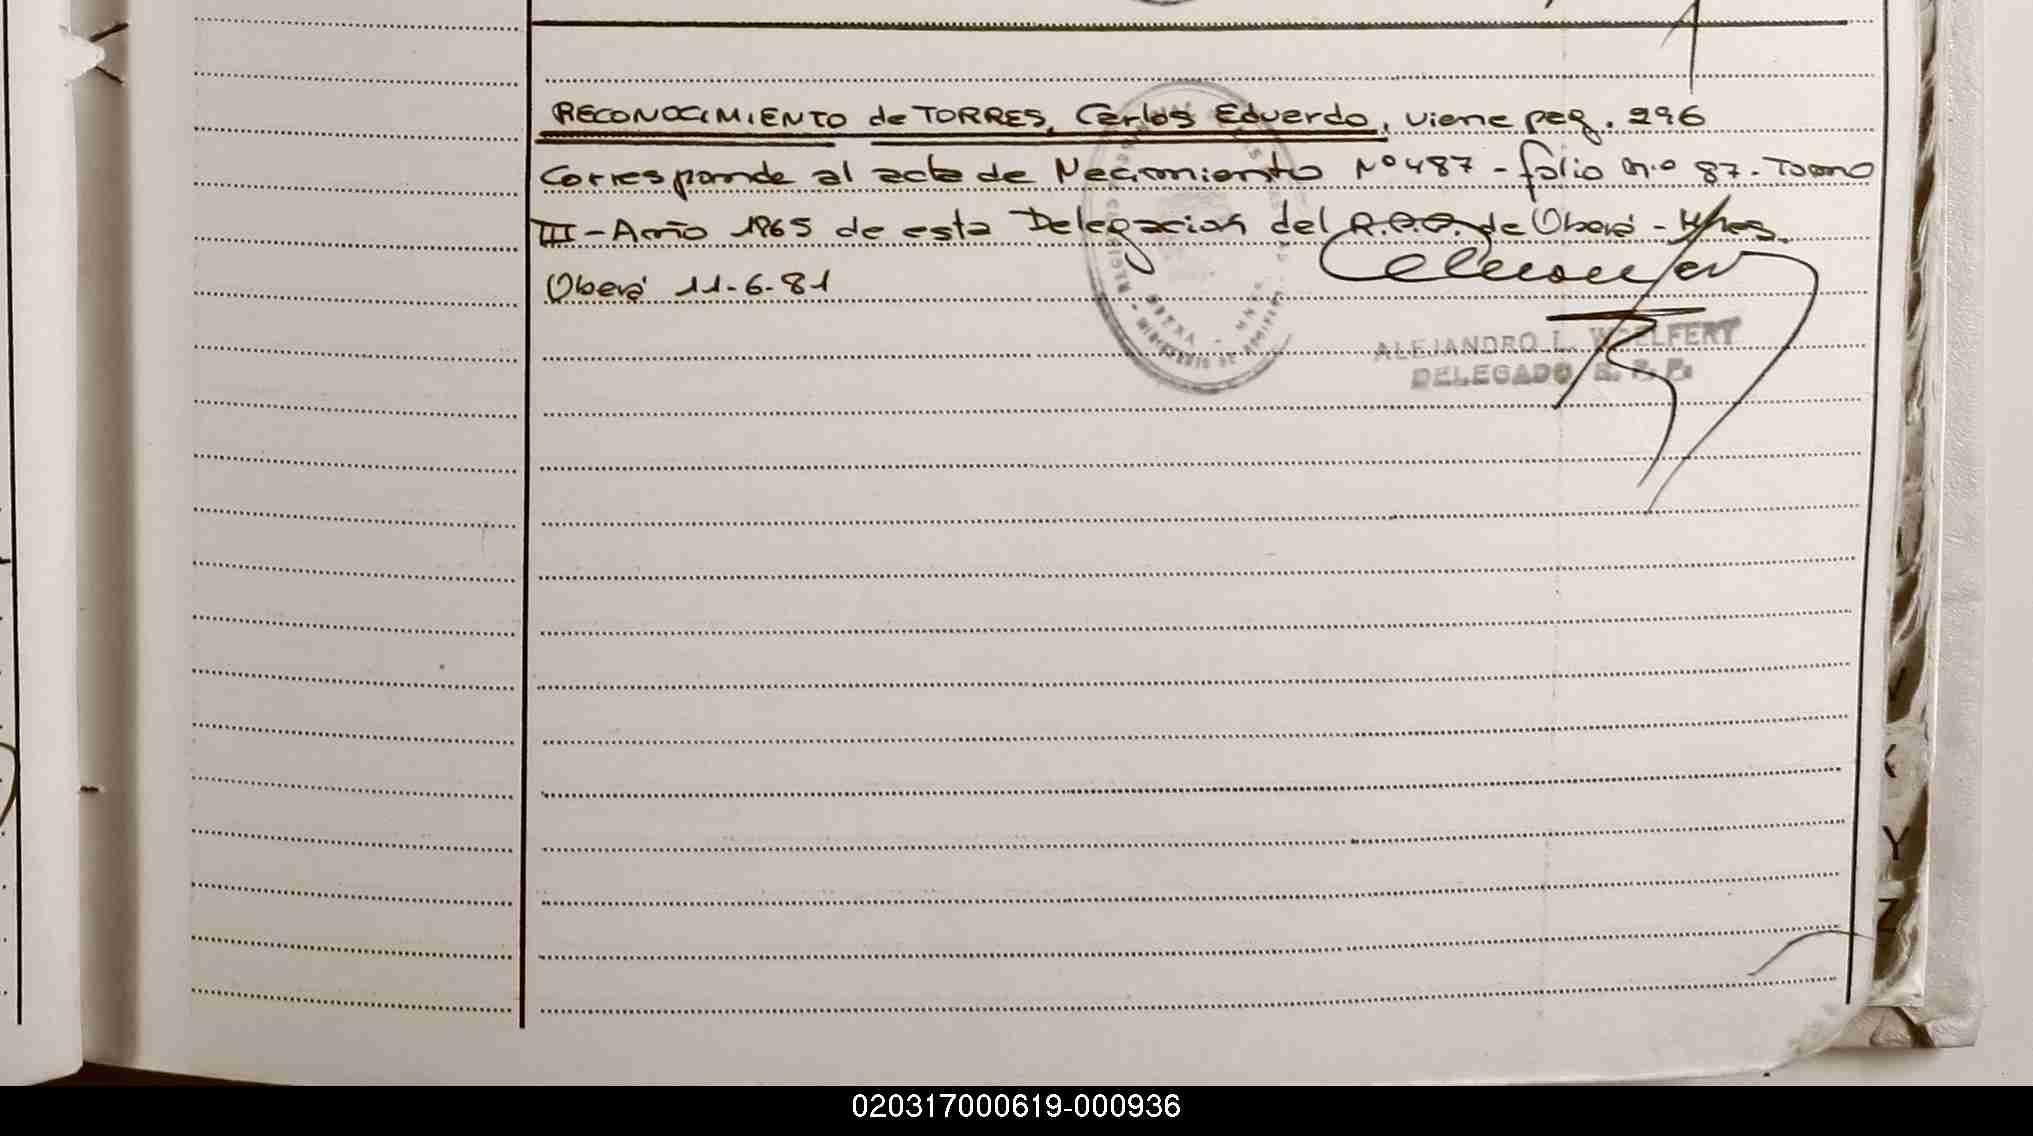 RECONOCIMIENTO de TORRES, Carlos Eduardo, viene pag. 296
Corresponde al acta de Nacimiento Nº 487 - folio n.º 87. Tomo
III - Año 1965 de esta Delegación del R.P.P. de Oberá - Mnes.
Oberá 11-6-81
ALEJANDRO L. WOELFERT
DELEGADO R. P. P.
020317000619-000936